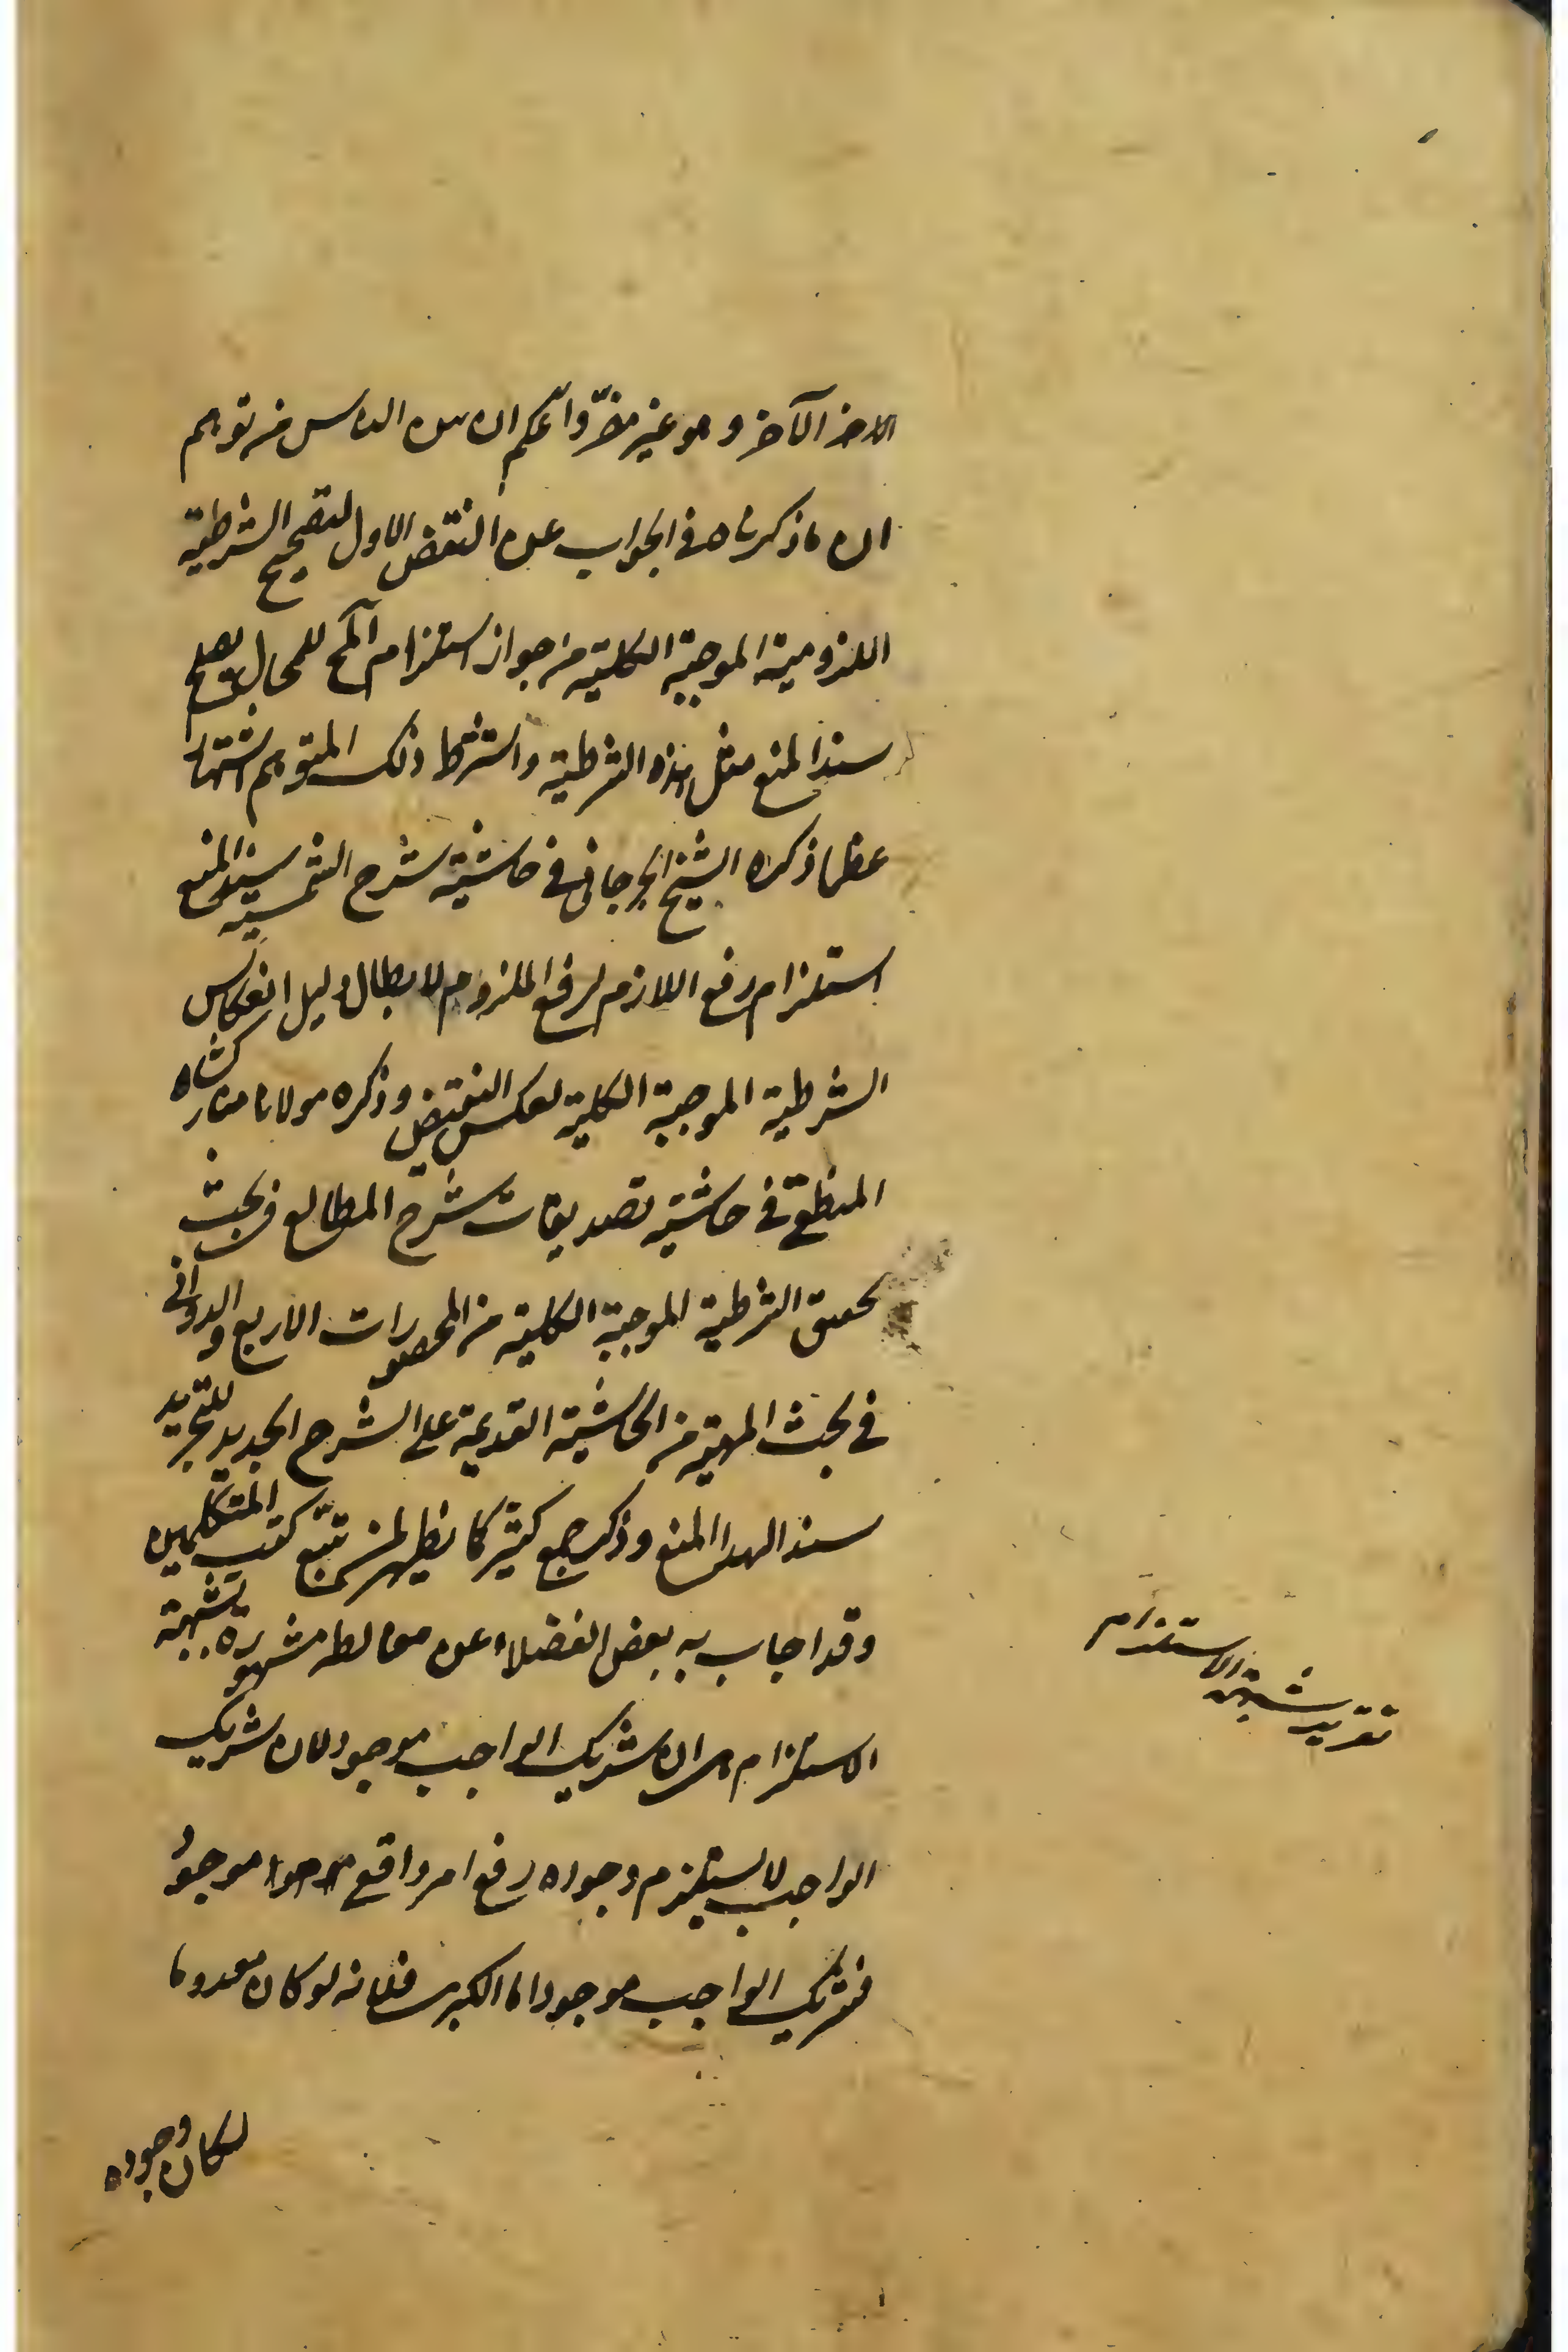 الآخر وهو غير مضر واعلم ان من الناس من توهم
ان ما ذكرناه في الجواب عن النقض الاول لتصحيح الشرطية
اللزومية الموجبة الكلية من جواز استلزام المح للمحال يصلح
سند المنع مثل هذه الشرطية واستشهد ذلك المتوهم
ما ذكره الشيخ الجرجاني في حاشية شرح الشمسية سند المنع
استلزام رفع اللازم لرفع الملزوم لابطال دليل انعكاس
الشرطية الموجبة الكلية لعكس النقيض وذكره مولانا مباركشاه
المنطقي في حاشية تصديقات شرح المطالع في بحث
تحقق الشرطية الموجبة الكلية من المحصورات الاربع والدواني
في بحث المهية من الحاشية القديمة على الشرح الجديد للتجريد
سند الهذا المنع وذكر جمع كثير كما يظهر لمن تتبع كتب المتكلمين
وقد اجاب به بعض الفضلاء عن مغالطة مشهورة بشبهة
الاستلزام هي ان شريك الواجب موجود لان شريك
الواجب لا يستلزم وجوده رفع امر واقع موجود
فشريك الواجب موجود اما الكبرى فلانه لو كان معدوما
لكان وجوده
تقرير شبهة الاستلزام